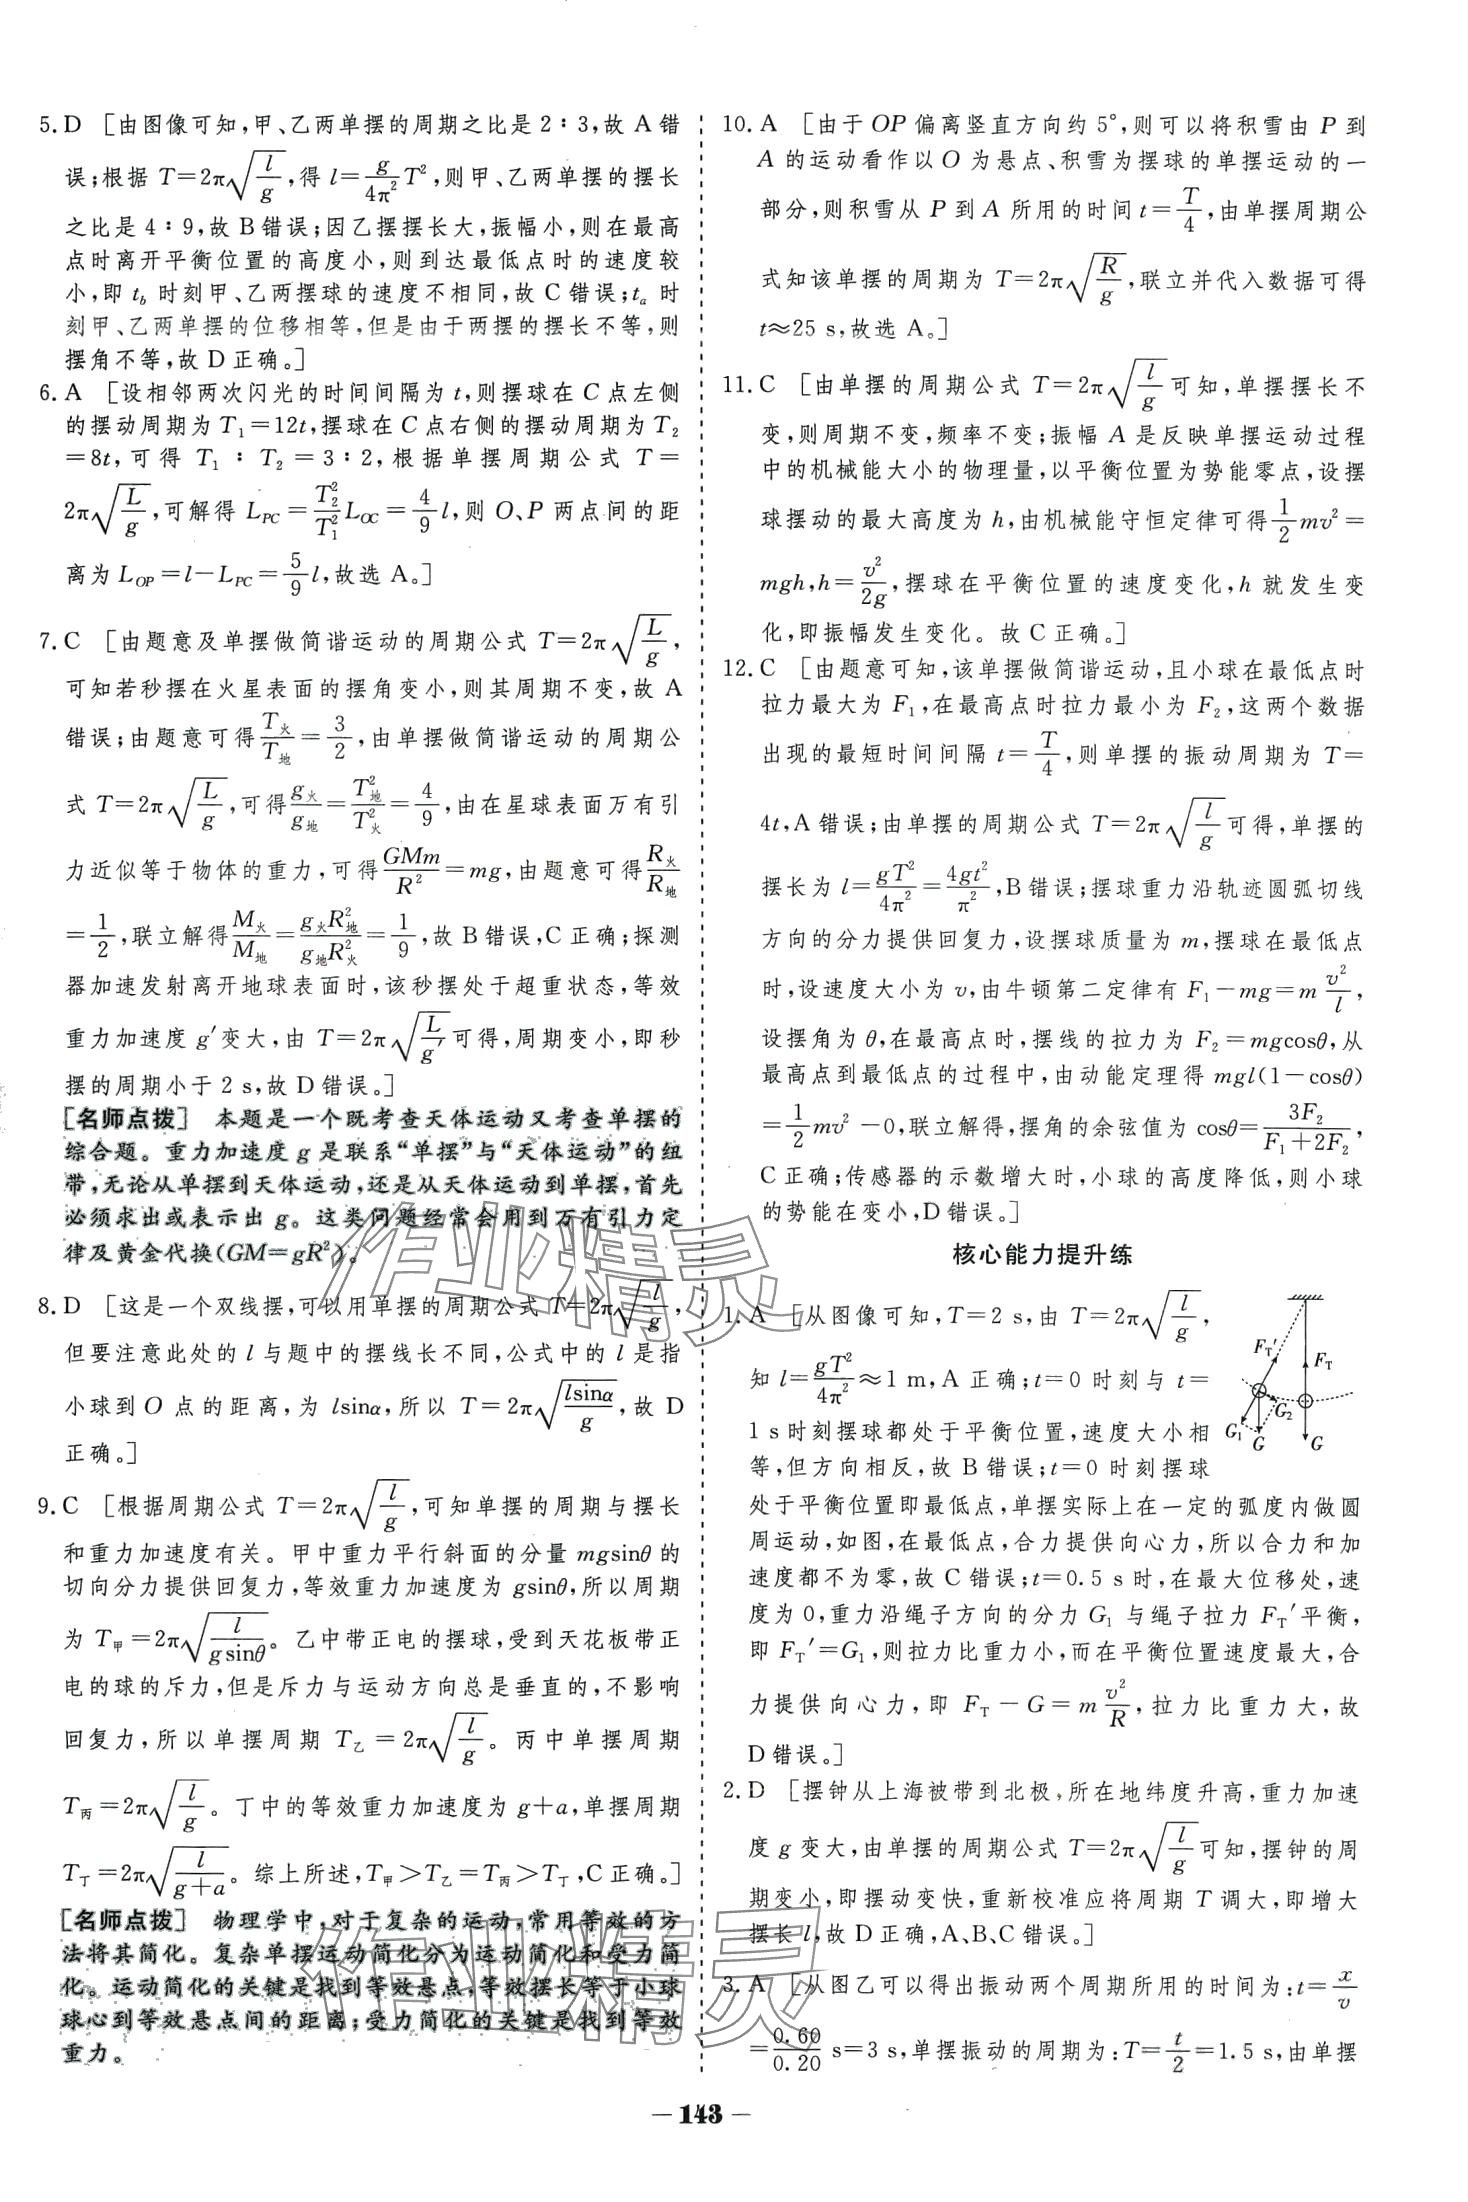 5. D [由图像可知,甲、乙两单摆的周期之比是 2∶3,故 A 错
误;根据 T=2π√(l/g),得 l=g/4π² T²,则甲、乙两单摆的摆长
之比是 4∶9,故 B 错误;因乙摆摆长大,振幅小,则在最高
点时离开平衡位置的高度小,则到达最低点时的速度较
小,即 t_b 时刻甲、乙两摆球的速度不相同,故 C 错误;t_a 时
刻甲、乙两单摆的位移相等,但是由于两摆的摆长不等,则
摆角不等,故 D 正确。]
6. A [设相邻两次闪光的时间间隔为 t,则摆球在 C 点左侧
的摆动周期为 T₁=12t,摆球在 C 点右侧的摆动周期为 T₂
=8t,可得 T₁∶T₂=3∶2,根据单摆周期公式 T=
2π√(L/g),可解得 L_PC=T₂²/T₁² L_OC=4/9 l,则 O、P 两点间的距
离为 L_OP=l-L_PC=5/9 l,故选 A。]
7. C [由题意及单摆做简谐运动的周期公式 T=2π√(L/g),
可知若秒摆在火星表面的摆角变小,则其周期不变,故 A
错误;由题意可得 T火/T地=3/2,由单摆做简谐运动的周期公
式 T=2π√(L/g),可得 g火/g地=T地²/T火²=4/9,由在星球表面万有引
力近似等于物体的重力,可得 GMm/R²=mg,由题意可得 R火/R地
=1/2,联立解得 M火/M地=g火R地²/g地R火²=1/9,故 B 错误,C 正确;探测
器加速发射离开地球表面时,该秒摆处于超重状态,等效
重力加速度 g′变大,由 T=2π√(L/g′)可得,周期变小,即秒
摆的周期小于 2 s,故 D 错误。]
[名师点拨] 本题是一个既考查天体运动又考查单摆的
综合题。重力加速度 g 是联系“单摆”与“天体运动”的纽
带,无论从单摆到天体运动,还是从天体运动到单摆,首先
必须求出或表示出 g。这类问题经常会用到万有引力定
律及黄金代换(GM=gR²)。
8. D [这是一个双线摆,可以用单摆的周期公式 T=2π√(l/g),
但要注意此处的 l 与题中的摆线长不同,公式中的 l 是指
小球到 O 点的距离,为 lsinα,所以 T=2π√(lsinα/g),故 D
正确。]
9. C [根据周期公式 T=2π√(l/g),可知单摆的周期与摆长
和重力加速度有关。甲中重力平行斜面的分量 mgsinθ 的
切向分力提供回复力,等效重力加速度为 gsinθ,所以周期
为 T甲=2π√(l/gsinθ)。乙中带正电的摆球,受到天花板带正
电的球的斥力,但是斥力与运动方向总是垂直的,不影响
回复力,所以单摆周期 T乙=2π√(l/g)。丙中单摆周期
T丙=2π√(l/g)。丁中的等效重力加速度为 g+a,单摆周期
T丁=2π√(l/(g+a))。综上所述,T甲>T乙=T丙>T丁,C 正确。]
[名师点拨] 物理学中,对于复杂的运动,常用等效的方
法将其简化。复杂单摆运动简化分为运动简化和受力简
化。运动简化的关键是找到等效悬点,等效摆长等于小球
球心到等效悬点间的距离;受力简化的关键是找到等效
重力。
10. A [由于 OP 偏离竖直方向约 5°,则可以将积雪由 P 到
A 的运动看作以 O 为悬点、积雪为摆球的单摆运动的一
部分,则积雪从 P 到 A 所用的时间 t=T/4,由单摆周期公
式知该单摆的周期为 T=2π√(R/g),联立并代入数据可得
t≈25 s,故选 A。]
11. C [由单摆的周期公式 T=2π√(l/g)可知,单摆摆长不
变,则周期不变,频率不变;振幅 A 是反映单摆运动过程
中的机械能大小的物理量,以平衡位置为势能零点,设摆
球摆动的最大高度为 h,由机械能守恒定律可得 1/2 mv²=
mgh,h=v²/2g,摆球在平衡位置的速度变化,h 就发生变
化,即振幅发生变化。故 C 正确。]
12. C [由题意可知,该单摆做简谐运动,且小球在最低点时
拉力最大为 F₁,在最高点时拉力最小为 F₂,这两个数据
出现的最短时间间隔 t=T/4,则单摆的振动周期为 T=
4t,A 错误;由单摆的周期公式 T=2π√(l/g)可得,单摆的
摆长为 l=gT²/4π²=4gt²/π²,B 错误;摆球重力沿轨迹圆弧切线
方向的分力提供回复力,设摆球质量为 m,摆球在最低点
时,设速度大小为 v,由牛顿第二定律有 F₁-mg=m v²/l,
设摆角为 θ,在最高点时,摆线的拉力为 F₂=mgcosθ,从
最高点到最低点的过程中,由动能定理得 mgl(1-cosθ)
=1/2 mv²-0,联立解得,摆角的余弦值为 cosθ=3F₂/(F₁+2F₂),
C 正确;传感器的示数增大时,小球的高度降低,则小球
的势能在变小,D 错误。]
核心能力提升练
1. A [从图像可知,T=2 s,由 T=2π√(l/g),
知 l=gT²/4π²≈1 m,A 正确;t=0 时刻与 t=
1 s 时刻摆球都处于平衡位置,速度大小相
等,但方向相反,故 B 错误;t=0 时刻摆球
F_T′
F_T
G₁
G
G₂
G
处于平衡位置即最低点,单摆实际上在一定的弧度内做圆
周运动,如图,在最低点,合力提供向心力,所以合力和加
速度都不为零,故 C 错误;t=0.5 s 时,在最大位移处,速
度为 0,重力沿绳子方向的分力 G₁ 与绳子拉力 F_T′平衡,
即 F_T′=G₁,则拉力比重力小,而在平衡位置速度最大,合
力提供向心力,即 F_T-G=m v²/R,拉力比重力大,故
D 错误。]
2. D [摆钟从上海被带到北极,所在地纬度升高,重力加速
度 g 变大,由单摆的周期公式 T=2π√(l/g)可知,摆钟的周
期变小,即摆动变快,重新校准应将周期 T 调大,即增大
摆长 l,故 D 正确,A、B、C 错误。]
3. A [从图乙可以得出振动两个周期所用的时间为:t=x/v
=0.60/0.20 s=3 s,单摆振动的周期为:T=t/2=1.5 s,由单摆
— 143 —
作业精灵
作业精灵